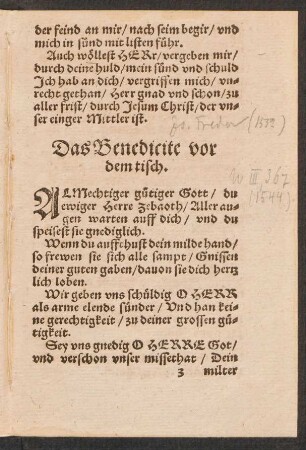 der feind an mir/ nach seim begir/ vnd
mich in sünd mit listen führ.
Auch wöllest HERr/ vergeben mir/
durch deine huld/ mein sünd vnd schuld
Ich hab an dich/ vergrissen mich/ vn-
recht gethan/ Herr gnad vnd schon/ zu
aller frist/ durch Jesum Christ/ der vn-
ser einger Mittler ist.
Das Benedicite vor
dem tisch.
ALMechtiger gütiger Gott/ du
ewiger Herre Zebaoth/ Aller au-
gen warten auff dich/ vnd du
speisest sie gnediglich.
Wenn du auffthust dein milde hand/
so frewen sie sich alle sampt/ Gnissen
deiner guten gaben/ dauon sie dich hertz
lich loben.
Wir geben vns schüldig O HERR
als arme elende sünder/ Vnd han kei-
ne gerechtigkeit/ zu deiner grossen gü-
tigkeit.
Sey vns gnedig O HERRE Got/
vnd verschon vnser missethat/ Dein
3 milter
W III 367
(1544)